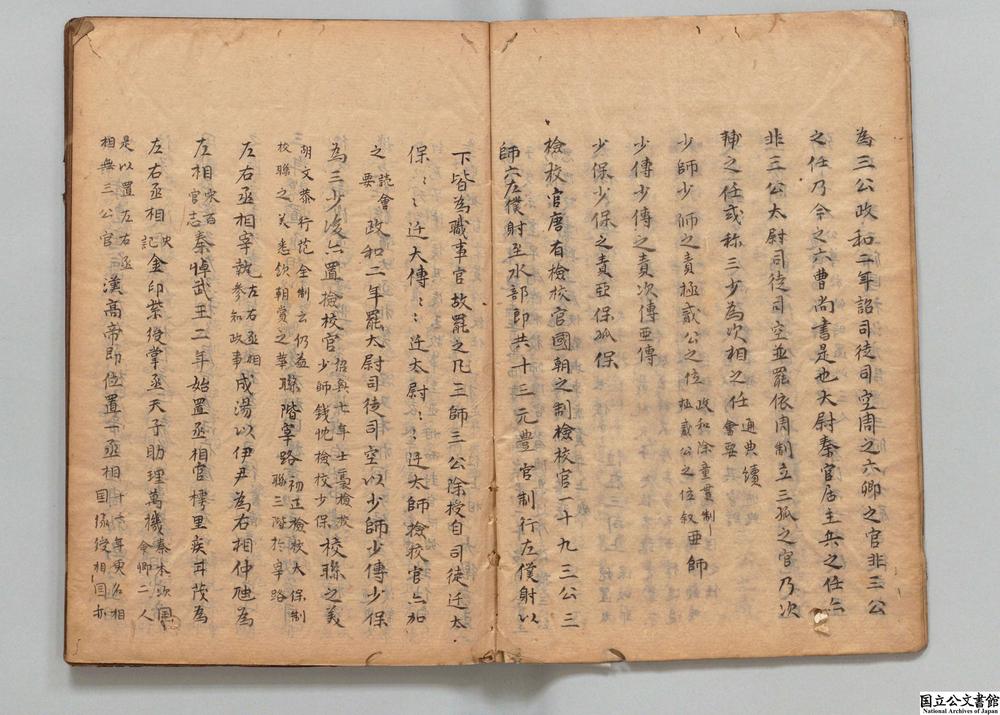 為三公政和二年詔司徒司空周之六卿之官非三公
之任乃今之六曹尚書是也大尉秦官居主兵之任亦
非三公太尉司徒司空並罷依周制立三孤之官乃次
輔之任或称三少為次相之任 通典續會要
少師少師之責極貳公之位 政和除童貫制 貳公之位叙 亜師
少傅少傅之責次傅亜傅
少保少保之責亜保孤保
檢校官唐有檢校官國朝之制檢校官一十九三公三
師六左僕射至水部郎共十三元豊官制行左僕射以
下皆為職事官故罷之凡三師三公除授自司徒迁太
保〻〻迁大傅〻〻迁太尉〻〻迁大師檢校官亦加
之 會要 政和二年罷大尉司徒司空以少師少傅少保
為三少後亦置檢校官 少師錢忱檢校少保 校聯之義
胡文恭行范全制云仍益校聯之美悉仍朝賞之華 聯階宰路 初正檢校大保制聯三階於宰路
左右丞相宰執 左右丞相參知政事 成湯以伊尹為右相仲虺為
左相 宋百官志 秦悼武王二年始置丞相官樗里疾甘茂為
左右丞相 史記 金印紫綬掌丞天子助理萬機 秦本次國命卿二人
是以置左右丞相無三公官 漢高帝即位置一丞相 十一年更名相國